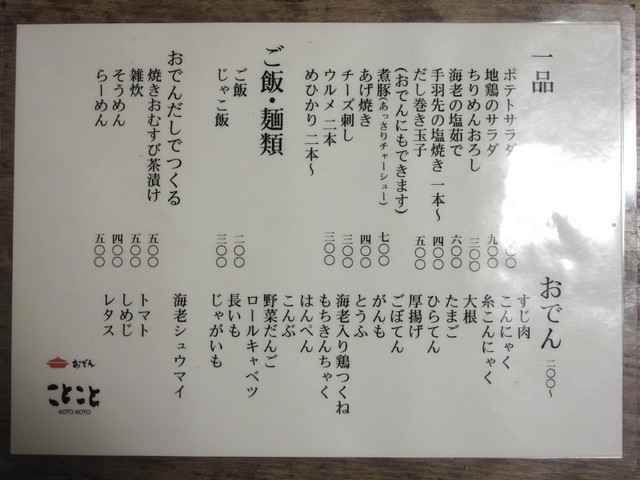 一品
ポテトサラダ 〇〇
地鶏のサラダ 九〇〇
ちりめんおろし 三〇〇
海老の塩茹で 六〇〇
手羽先の塩焼き 一本〜 四〇〇
だし巻き玉子 五〇〇
(おでんにもできます)
煮豚(あっさりチャーシュー) 七〇〇
あげ焼き 四〇〇
チーズ刺し 三〇〇
ウルメ 二本 三〇〇
めひかり 二本〜
ご飯・麺類
ご飯 二〇〇
じゃこ飯 三〇〇
おでんだしでつくる
焼きおむすび茶漬け 五〇〇
雑炊 五〇〇
そうめん 四〇〇
らーめん 五〇〇
おでん 二〇〇〜
すじ肉
こんにゃく
糸こんにゃく
大根
たまご
ひらてん
厚揚げ
ごぼてん
がんも
とうふ
海老入り鶏つくね
もちきんちゃく
はんぺん
こんぶ
野菜だんご
ロールキャベツ
長いも
じゃがいも
海老シュウマイ
トマト
しめじ
レタス
おでん
ことこと
KOTO KOTO